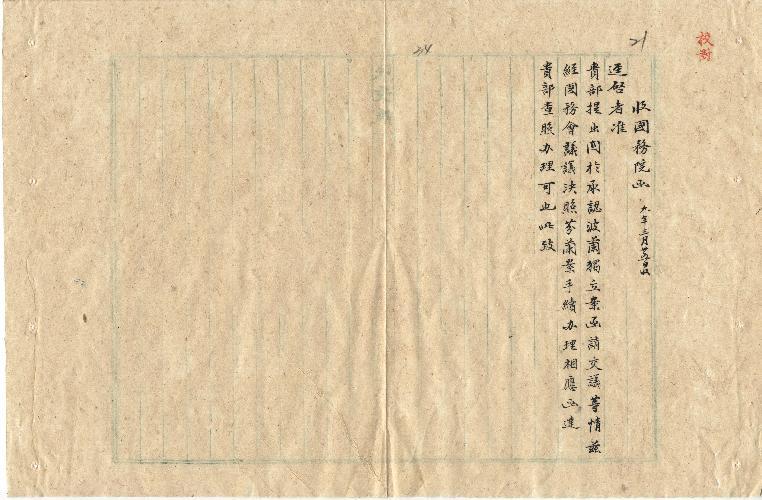 校對
21
24
收國務院函 九年三月廿五日收
逕啓者准
貴部提出関於承認波蘭獨立案函請交議等情茲
經國務會議議決照芬蘭案手續办理相應函達
貴部查照办理可也此致